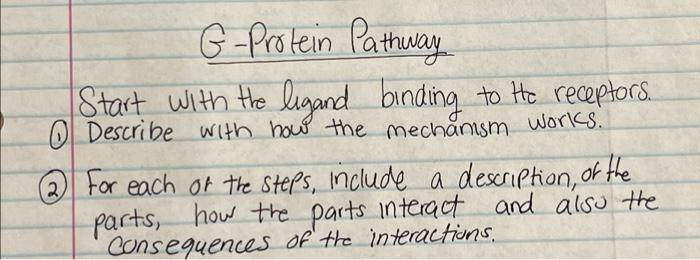 G-Protein Pathway
Start with the ligand binding to the receptors.
① Describe with how the mechanism works.
② For each of the steps, include a description, of the
parts, how the parts interact and also the
consequences of the interactions.